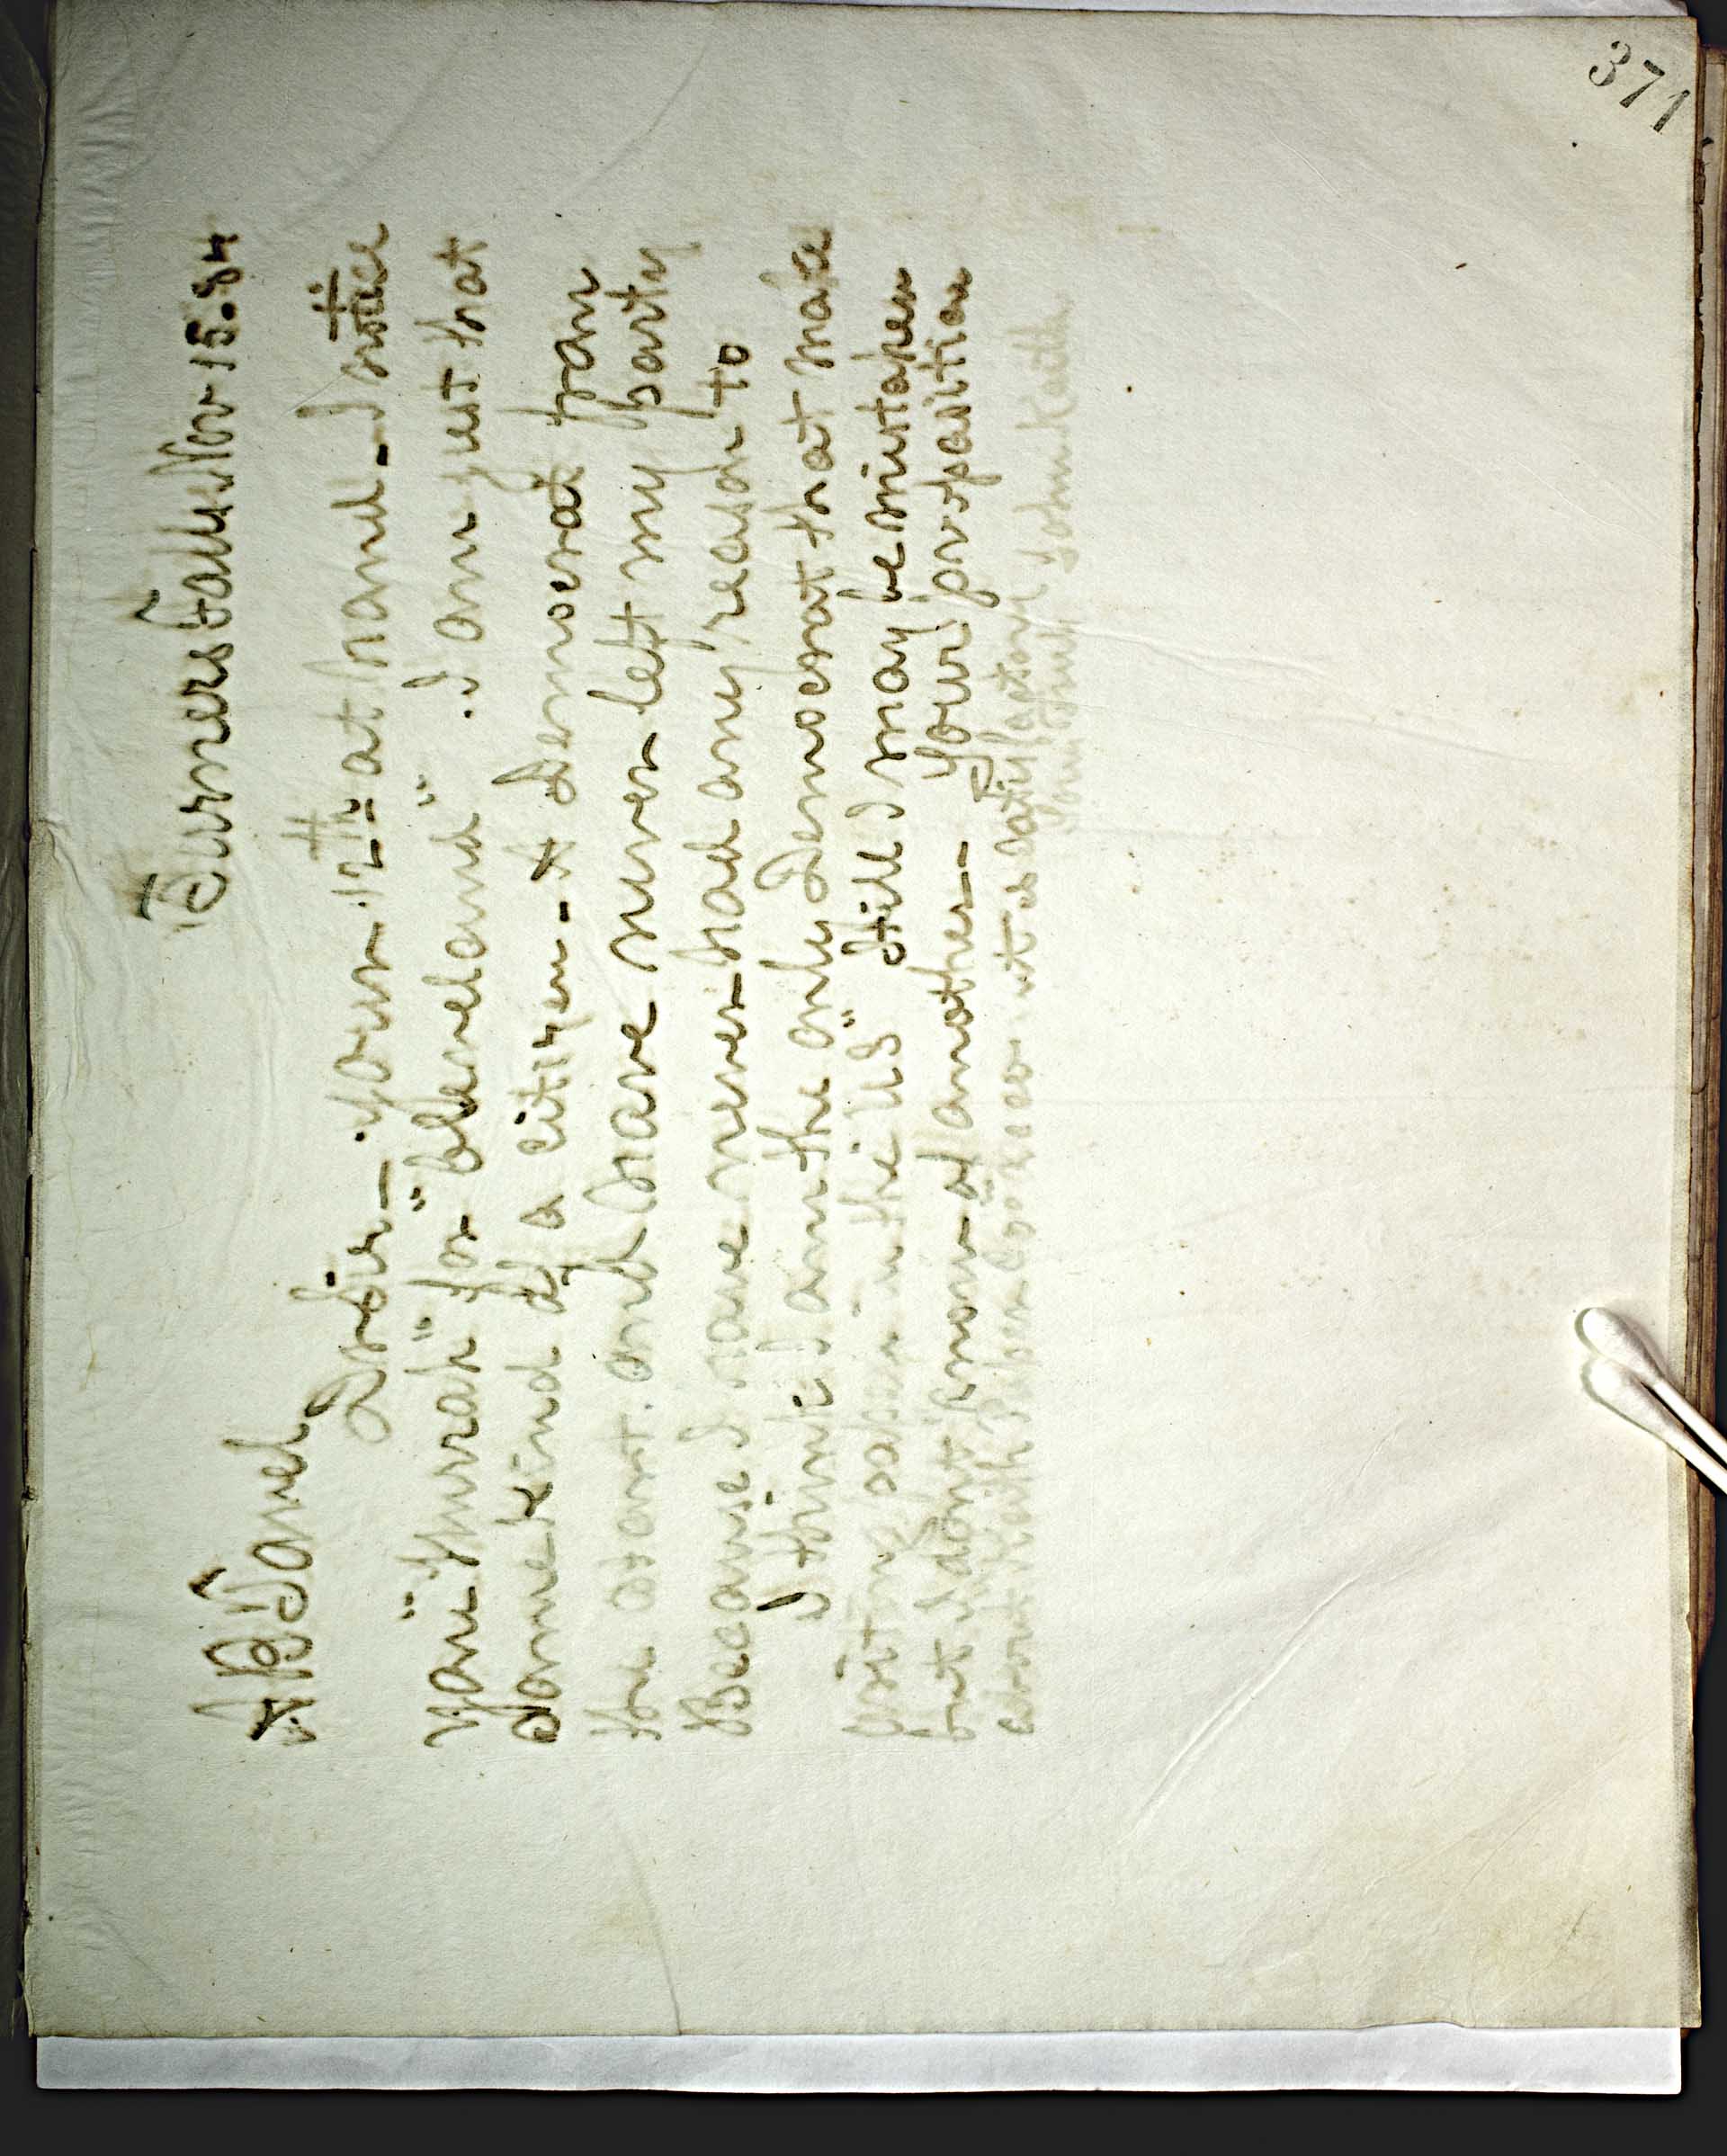 371
Turners Falls Nov 15 - 84
A B Daniel
Dr Sir - Your 12th at hand - I notice
you "Hurrah" for "Cleveland". I am just that
same kind of a citizen - A Democrat from
the start. and have never left my party
Because I have never had any reason to
I think I am the only Democrat that make
in the US" Still I may be mistaken
but I don't know of another - Your proposition
about Keith Paper Co is satisfactory
Yours truly John Keith